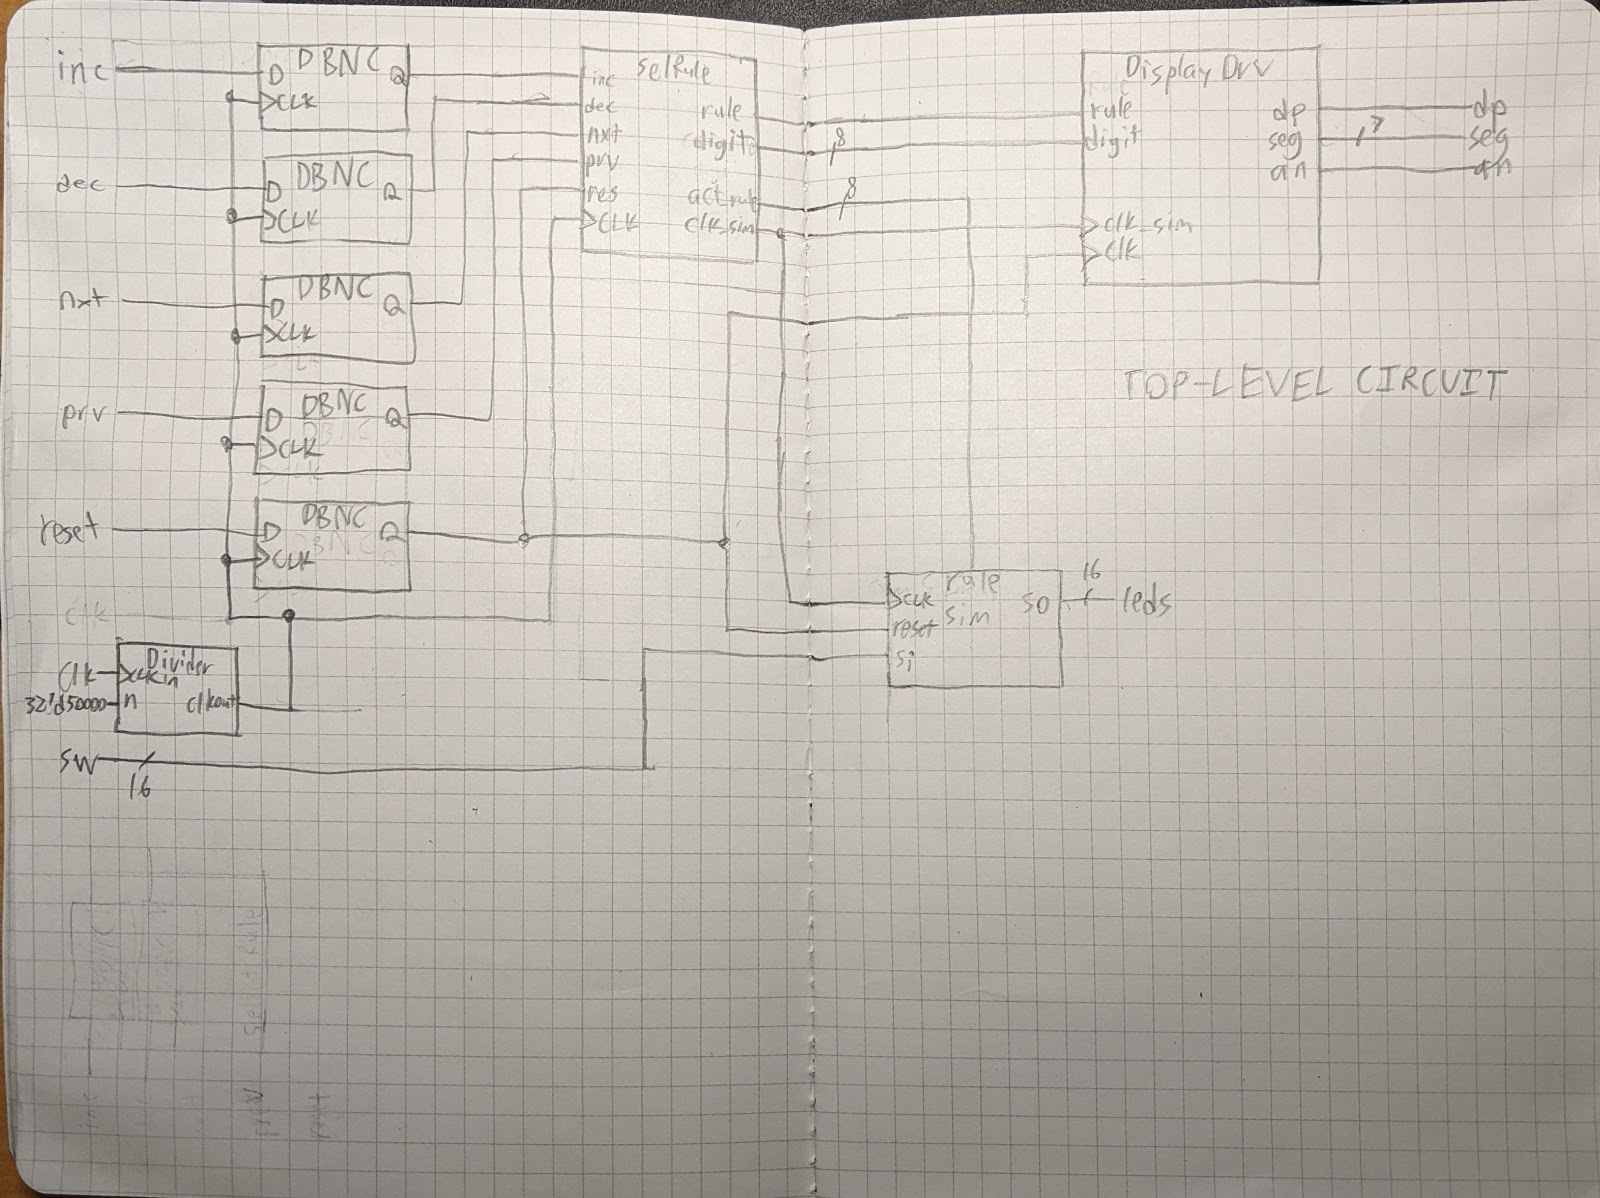 inc
D DBNC Q
CLK
dec
D DBNC Q
CLK
nxt
D DBNC Q
CLK
prv
D DBNC Q
CLK
reset
D DBNC Q
CLK
clk
Divider
Clk CLKin
32'd50000 n clkout
SW
16
SelRule
inc
dec rule
nxt digit
prv
res act rule
CLK clk_sim
8
8
Display Drv
rule dp
digit seg
an
clk_sim
clk
7
dp
seg
an
TOP-LEVEL CIRCUIT
rule
sim
CLK SO
reset
si
16
leds